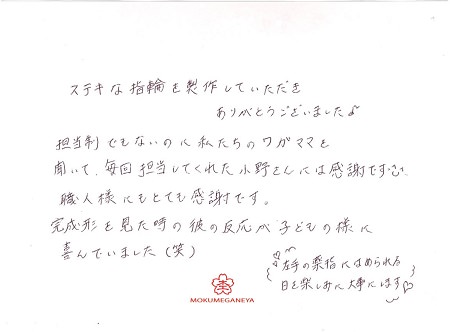 ステキな指輪を製作していただき
ありがとうございました♪
担当制でもないのに私たちのワガママを
聞いて、毎回担当してくれた小野さんには感謝です。
職人様にもとても感謝です。
完成形を見た時の彼の反応が子どもの様に
喜んでいました(笑)
左手の薬指にはめられる
日を楽しみに大事にします♡
MOKUMEGANEYA